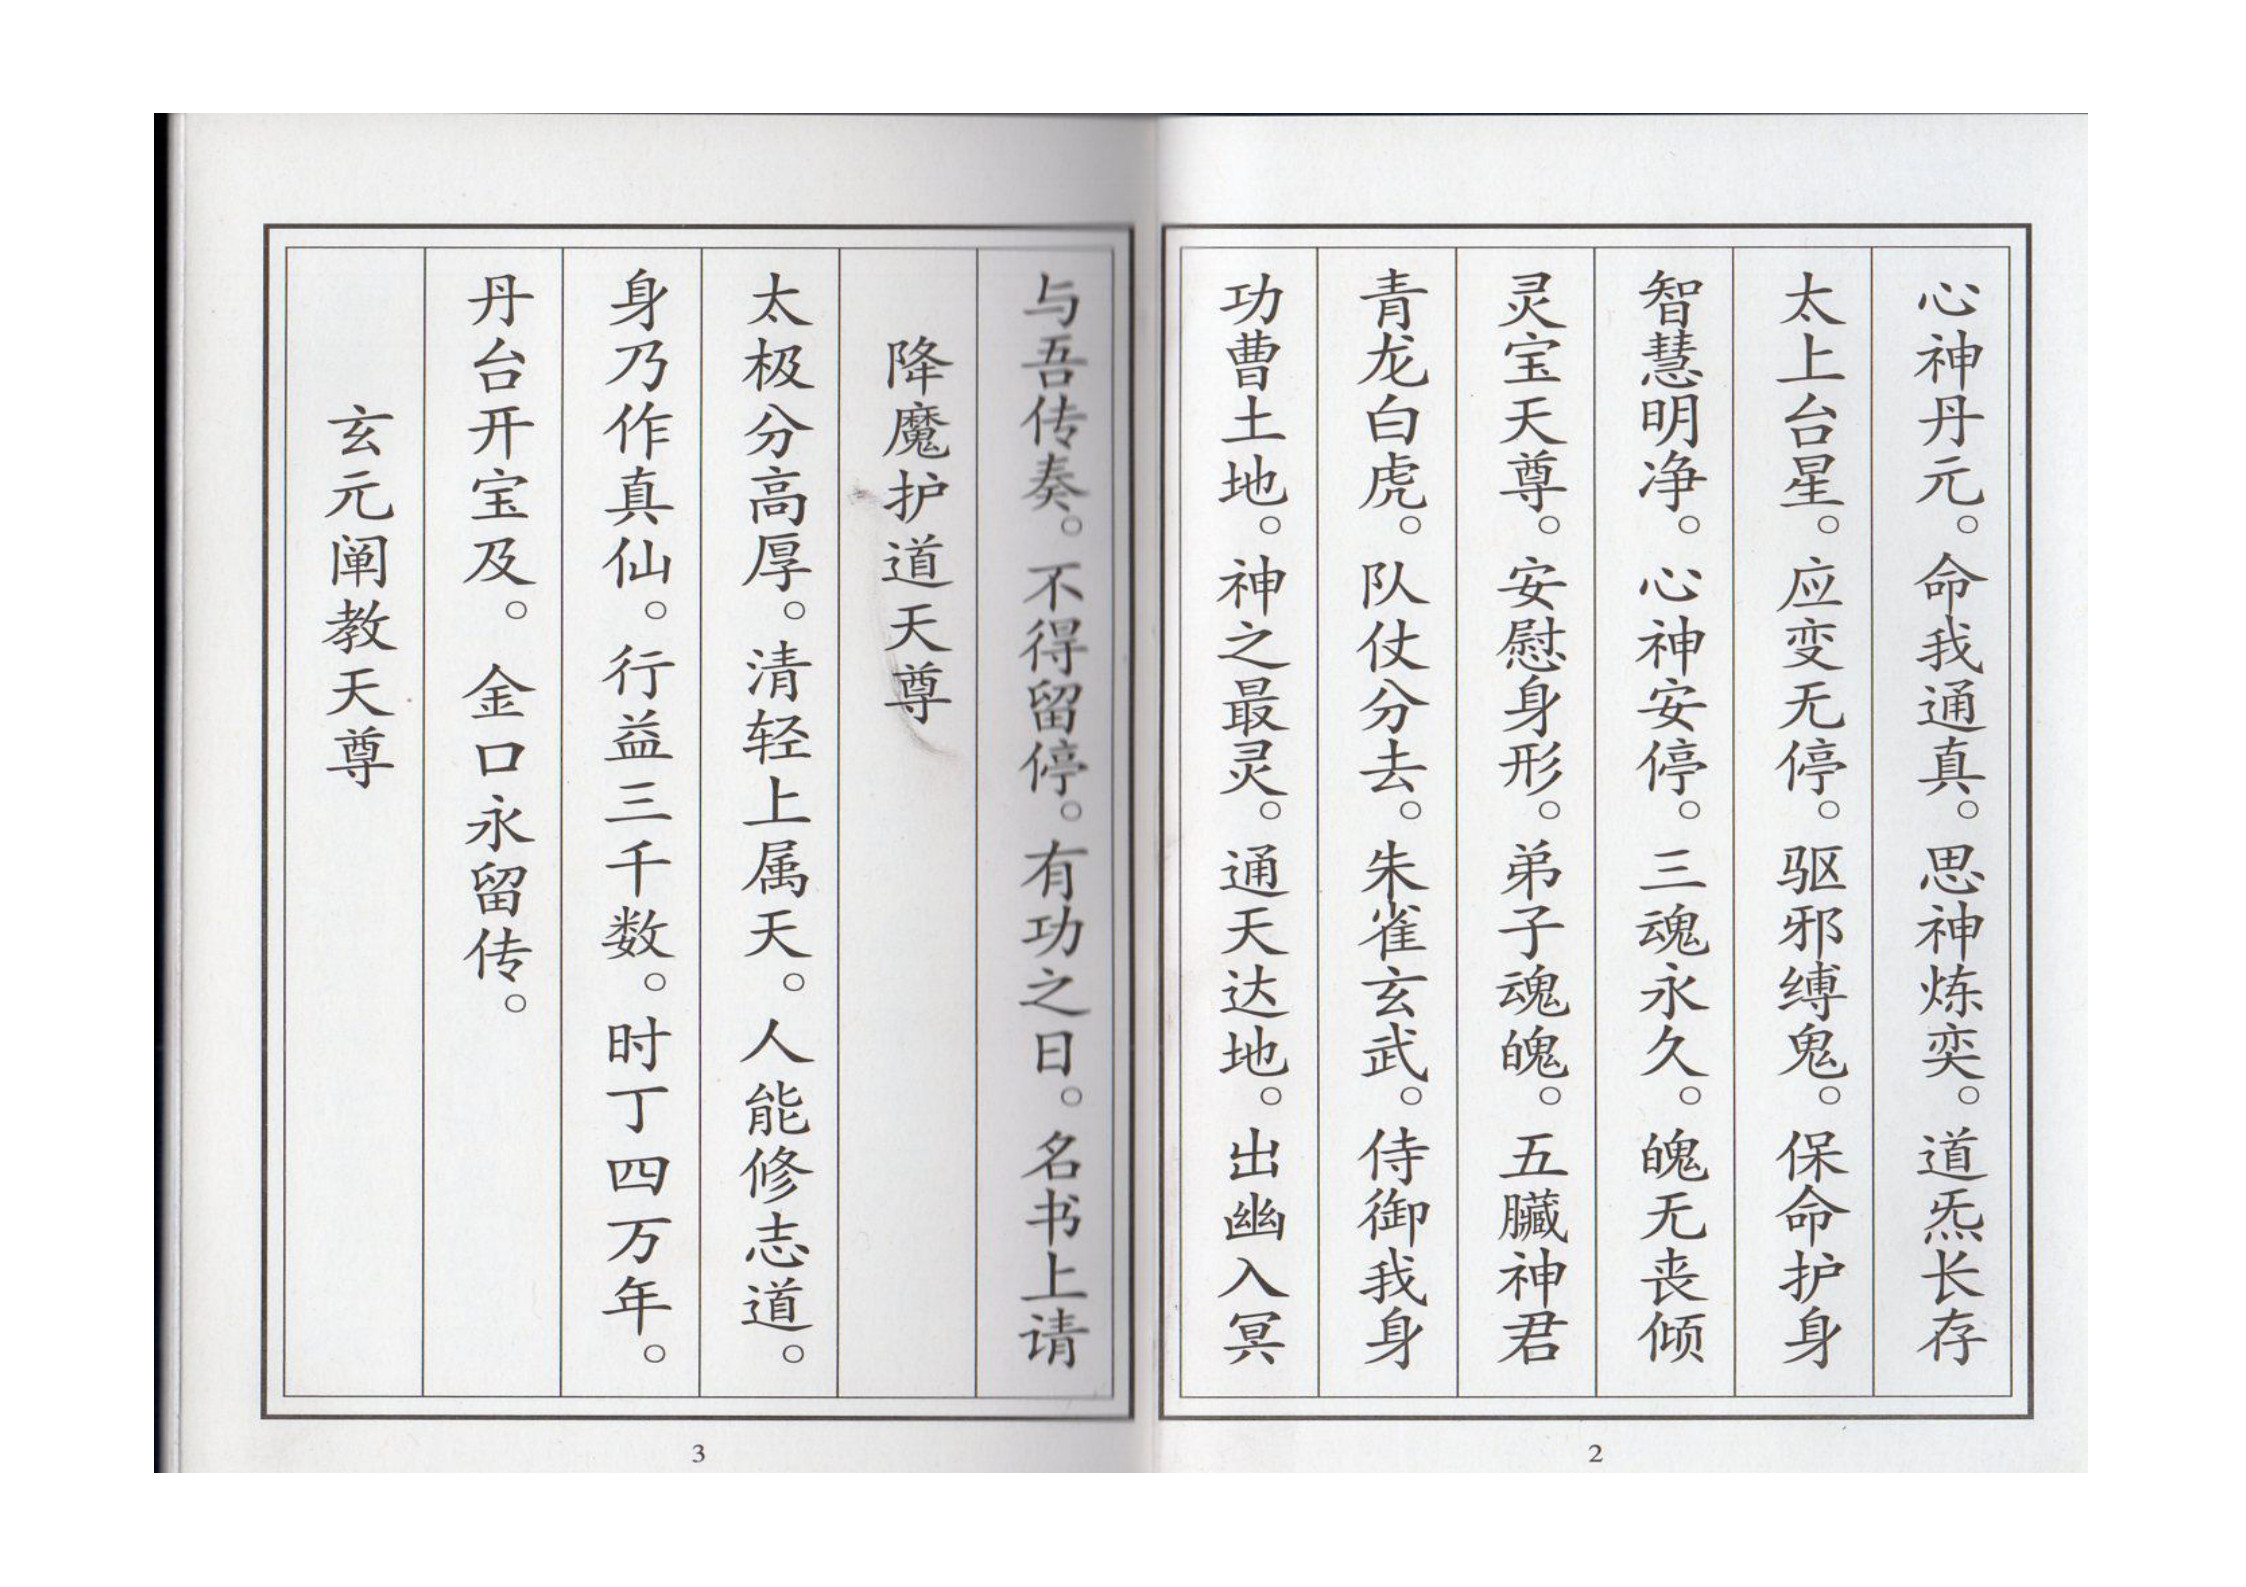 心神丹元。命我通真。思神炼奕。道炁长存
太上台星。应变无停。驱邪缚鬼。保命护身
智慧明净。心神安停。三魂永久。魄无丧倾
灵宝天尊。安慰身形。弟子魂魄。五臟神君
青龙白虎。队仗分去。朱雀玄武。侍御我身
功曹土地。神之最灵。通天达地。出幽入冥
2
与吾传奏。不得留停。有功之日。名书上请
降魔护道天尊
太极分高厚。清轻上属天。人能修志道。
身乃作真仙。行益三千数。时丁四万年。
丹台开宝及。金口永留传。
玄元阐教天尊
3